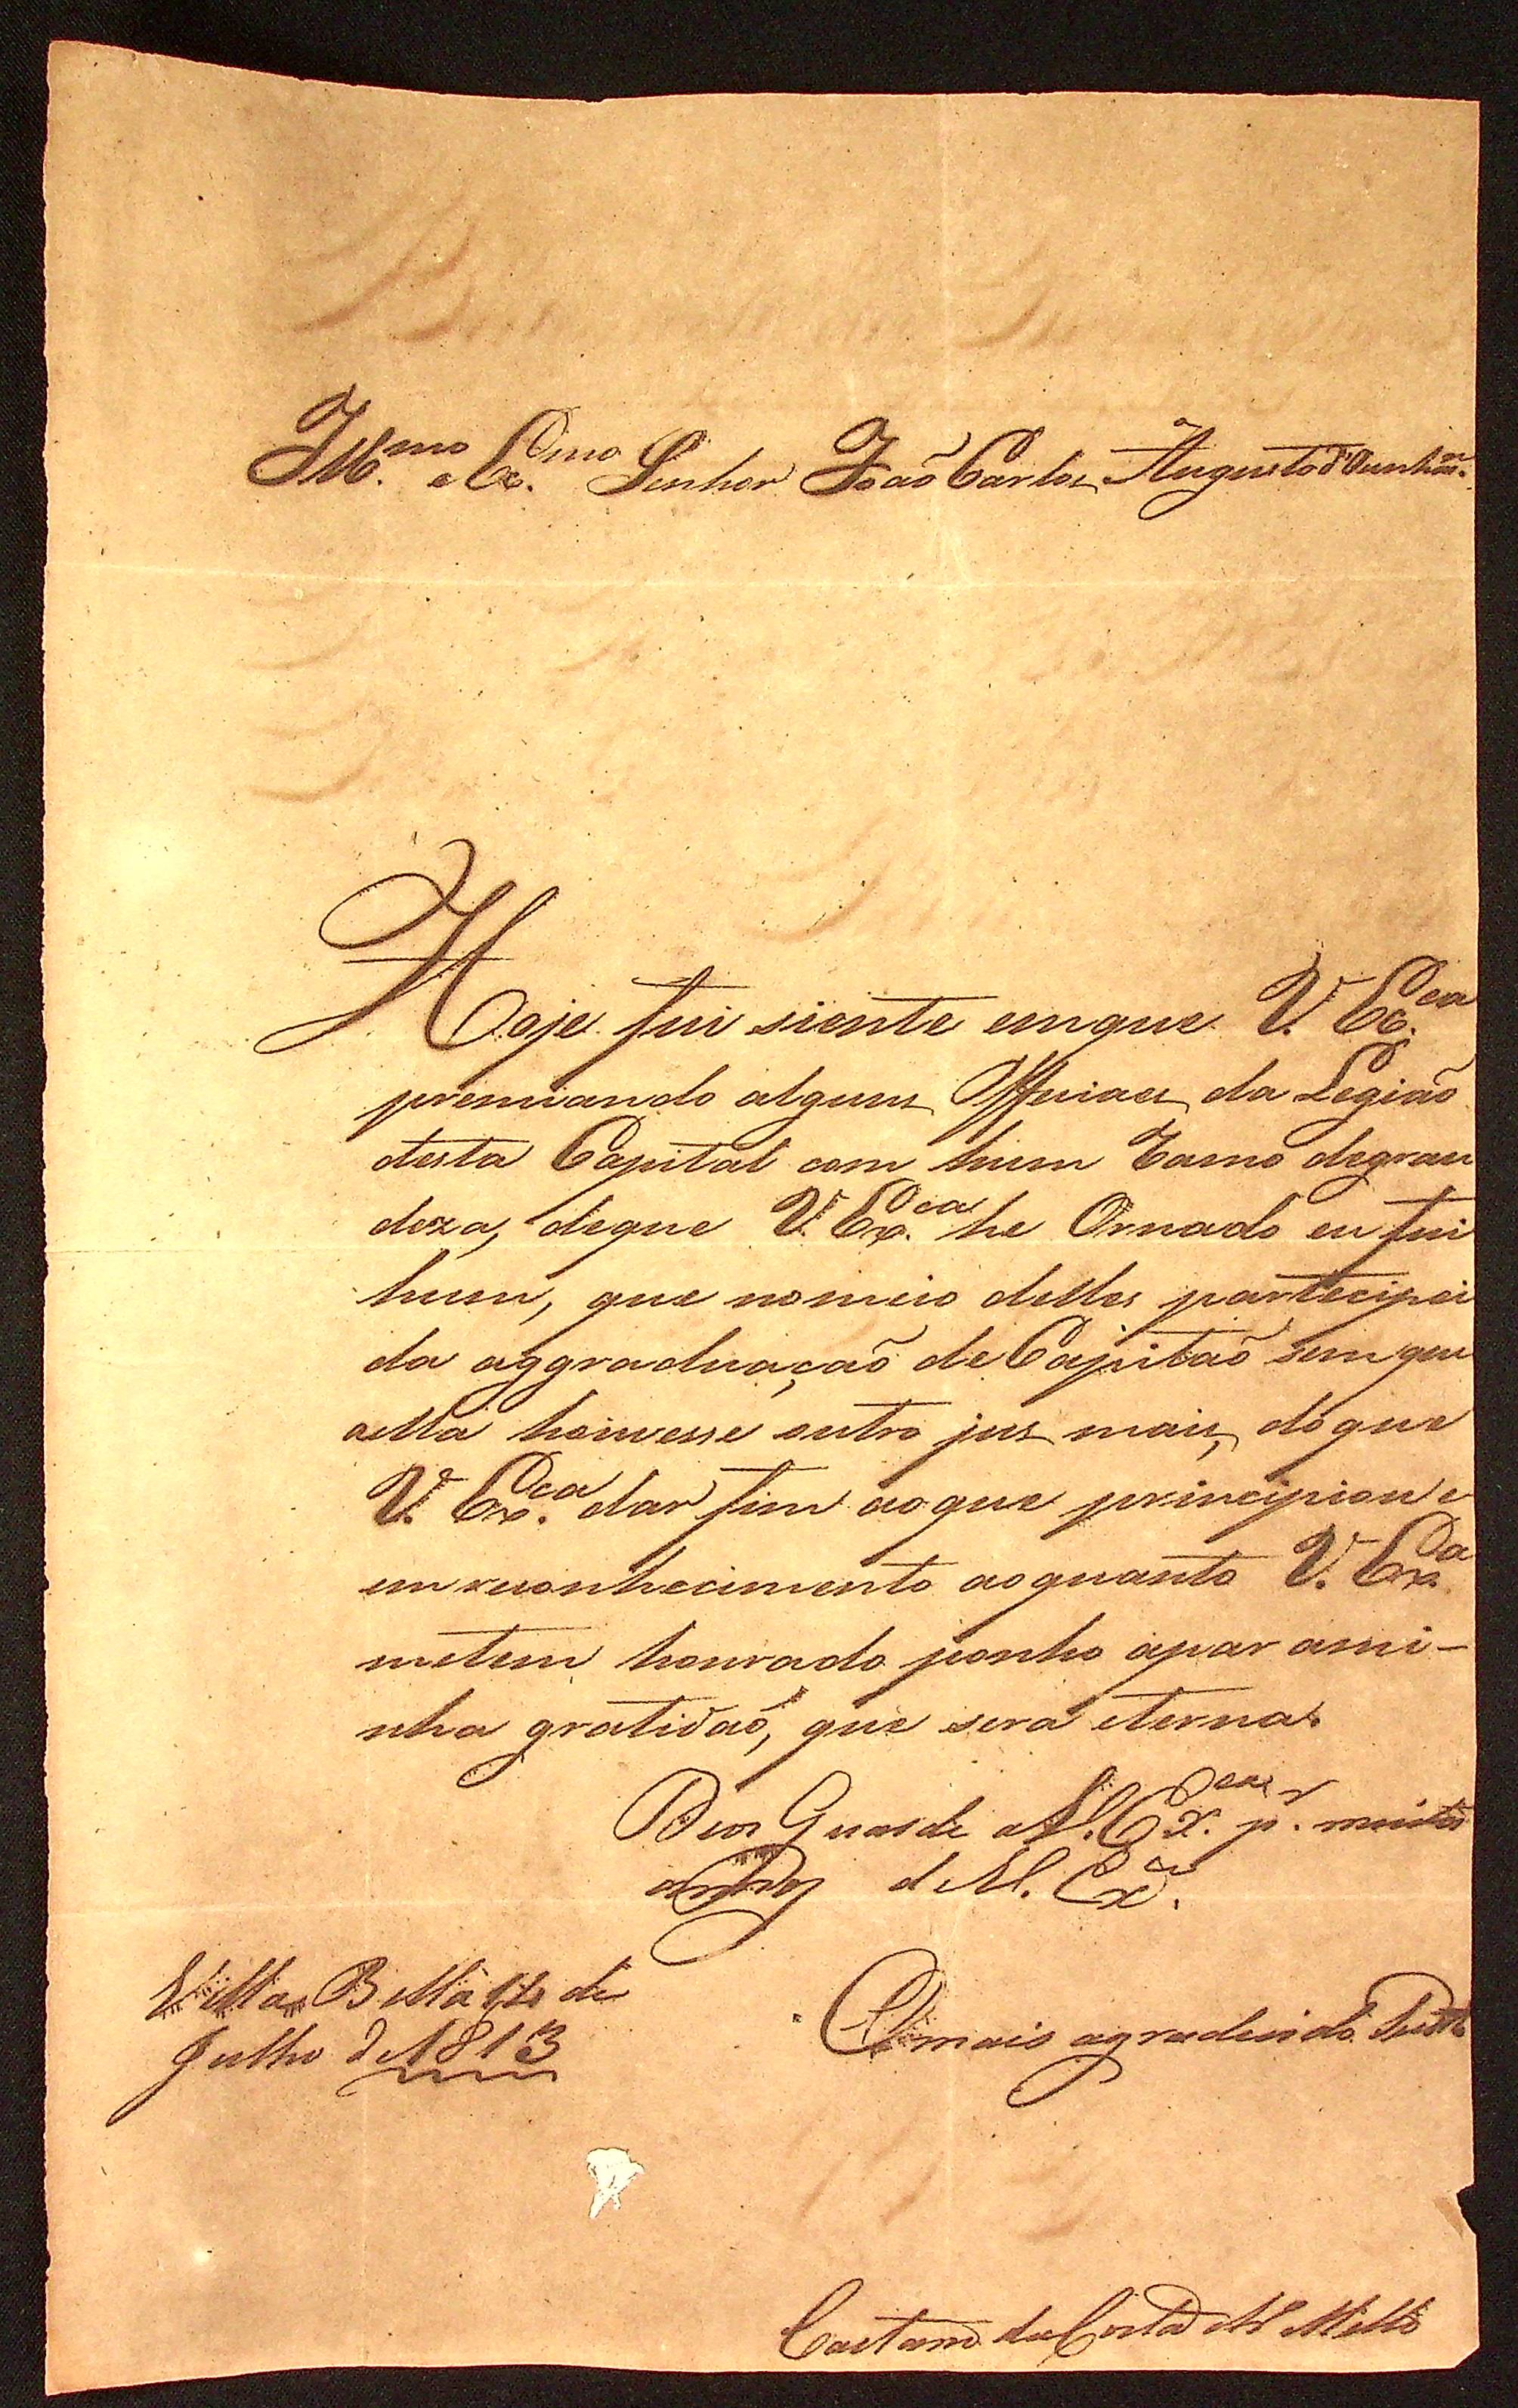 Ill.mo e Ex.mo Senhor João Carlos Augusto d'Oeynhau.
Hoje fui siente emque V. Ex.ca
premiando alguns Officiaes da Legião
desta Capital com hum Ramo degran
deza, deque V. Ex.ca he Ornado eu fui
hum, que nomeio delles partecipei
da aggraduação de Capitaõ sem que
aella houvesse outro jus mais, doque
V. Ex.ca dar fim aoque principiou e
em reconhecimento aoquanto V. Ex.a
metem honrado ponho apar ami-
nha gratidaõ, que será eterna.
Deos Guarde a V. Ex.ca p.r muitos
annos de V. Ex.ca
Villa Bella 14 de
Julho de 1813
O mais agradecido
Caetano da Costa Mello